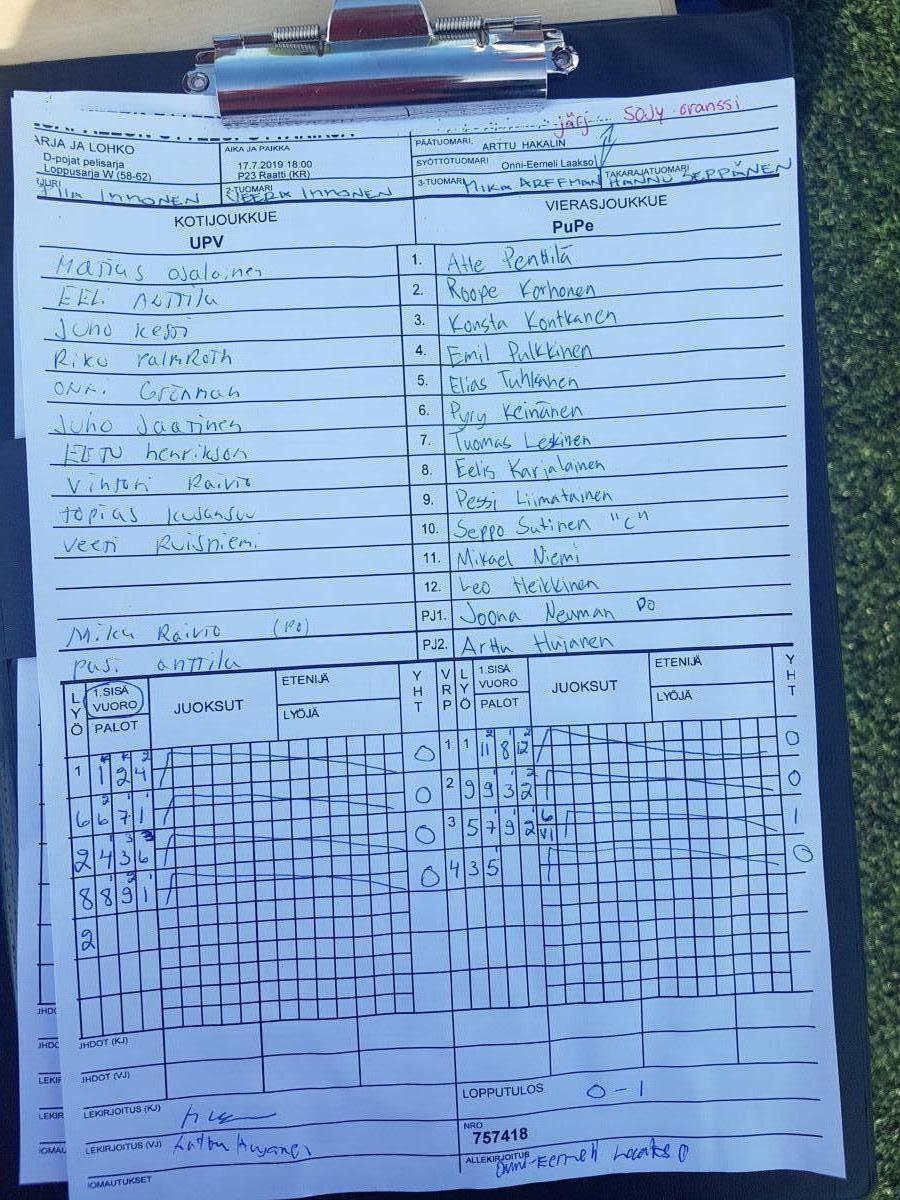 järj SoJy oranssi
ARJA JA LOHKO
D-pojat pelisarja
Loppusarja W (58-62)
AIKA JA PAIKKA
17.7.2019 18:00
P23 Raatti (KR)
PÄÄTUOMARI, ARTTU HAKALIN
SYÖTTÖTUOMARI Onni-Eemeli Laakso
INKONEN
2-TUOMARI VEERA INKONEN
3-TUOMARI MIKA ARFFMAN
TAKARAJATUOMARI HANNU SEPPÄNEN
KOTIJOUKKUE
UPV
VIERASJOUKKUE
PuPe
Matias Ojalainen 1. Atte Penttilä
EELi Anttila 2. Roope Korhonen
Juho kesti 3. Konsta Kontkanen
Riku PalmRoth 4. Emil Pulkkinen
ONNi Grönman 5. Elias Tuhkanen
Juho Jaatinen 6. Pyry Keinänen
EETU henrikson 7. Tuomas Leskinen
Vihtori Raivio 8. Eelis Karjalainen
topias kusansuu 9. Pessi Liimatainen
veeti Ruispiemi 10. Seppo Sutinen "C"
11. Mikael Niemi
12. Leo Heikkinen
Mika Raivio (PO) PJ1. Joona Neuman PO
pasi anttila PJ2. Arttu Hujanen
LYÖ 1.SISÄ VUORO PALOT JUOKSUT ETENIJÄ LYÖJÄ YHT VRP LYÖ 1.SISÄ VUORO PALOT JUOKSUT ETENIJÄ LYÖJÄ YHT
1 1 2 4 0 1 1 11 8 12 0
6 6 7 1 0 2 9 9 3 2 0
2 4 3 6 0 3 5 7 9 2 6 VI 1
8 8 9 1 0 4 3 5 0
2
JHDOT (KJ)
JHDOT (VJ)
LOPPUTULOS 0-1
LEKIRJOITUS (KJ)
NRO
757418
LEKIRJOITUS (VJ) Arttu Hujanen
ALLEKIRJOITUS Onni-Eemeli Laakso
IOMAUTUKSET